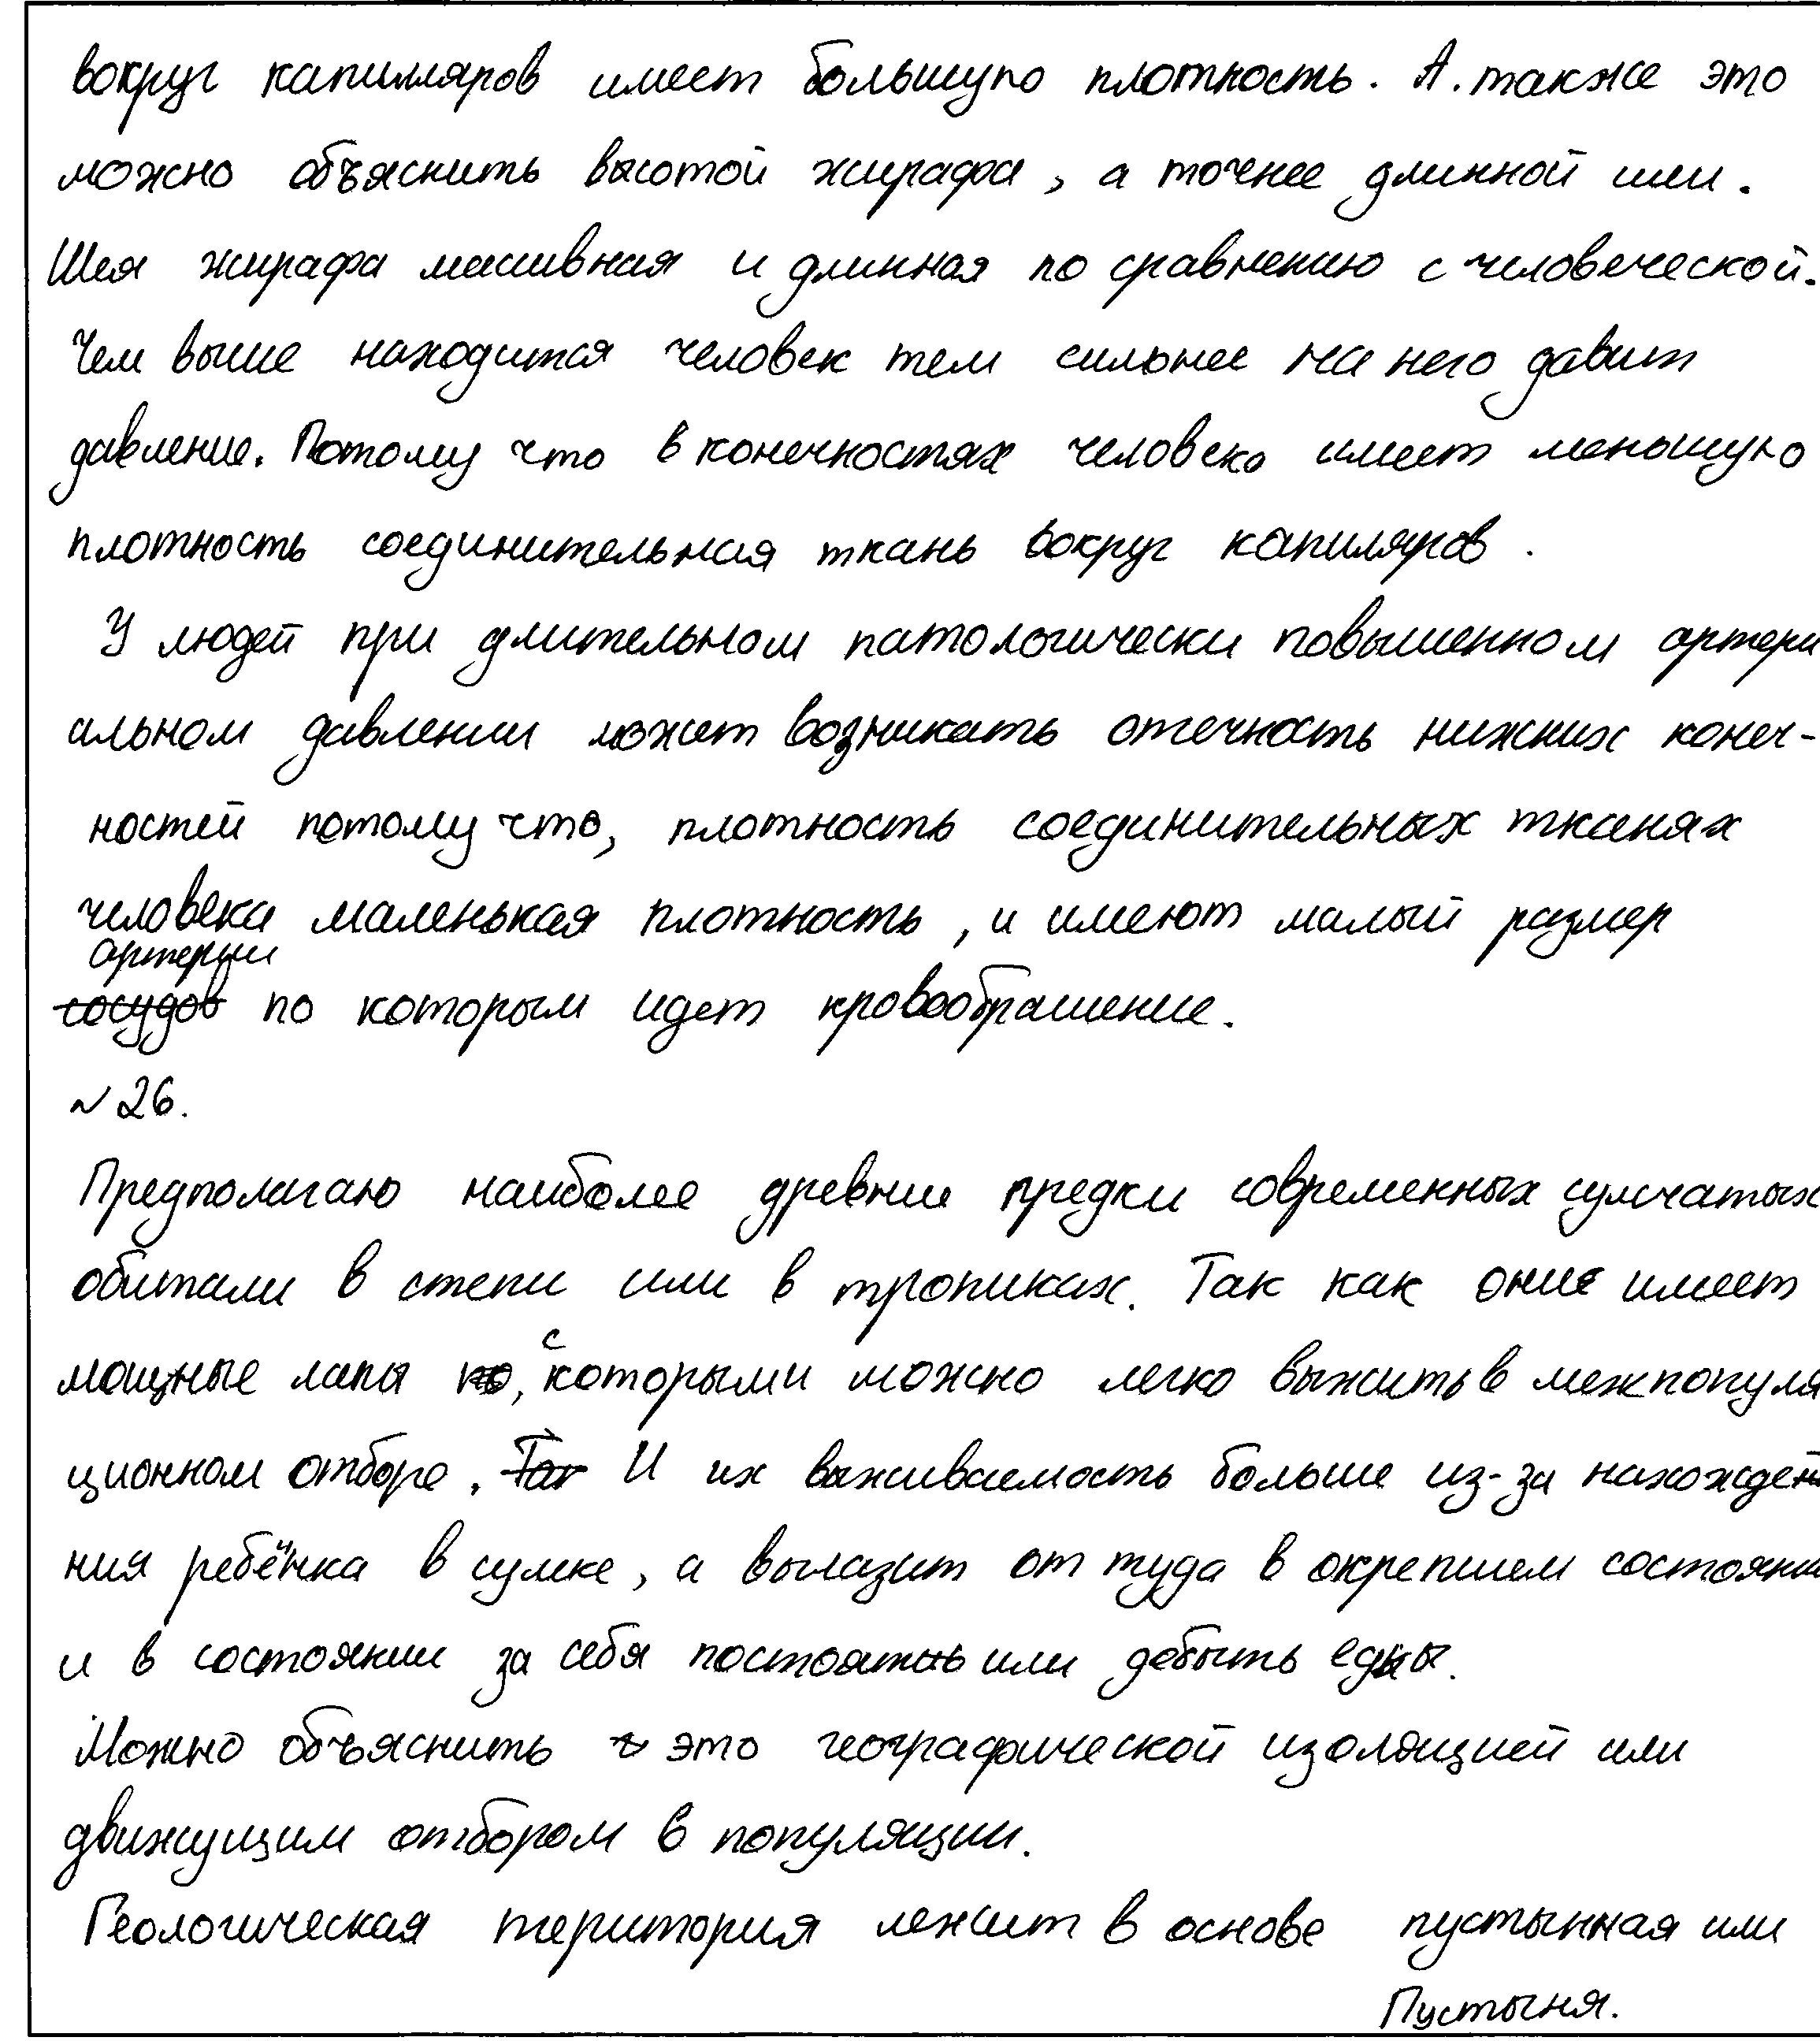 вокруг капилляров имеет большую плотность. А также это
можно объяснить высотой жирафа, а точнее длинной шеи.
Шея жирафа массивная и длинная по сравнению с человеческой.
Чем выше находится человек тем сильнее на него давит
давление. Потому что в конечностях человека имеет меньшую
плотность соединительная ткань вокруг капиляров.
У людей при длительном патологически повышенном артери
альном давлении может возникать отечность нижних конеч-
ностей потому что, плотность соединительных тканях
человека маленькая плотность, и имеют малый размер
артерии
сосудов по которым идет кровообращение.
№ 26.
Предполагаю наиболее древние предки современных сумчатых
обитали в степи или в тропиках. Так как они имеет
мощные лапы, с которыми можно легко выжить в межпопуля
ционном отборе. Так И их выживаемость больше из-за нахожден
ния ребёнка в сумке, а вылазит от туда в окрепшем состоянии
и в состоянии за себя постоять или добыть еды.
Можно объяснить это географической изоляцией или
движущим отбором в популяции.
Геологическая територия лежит в основе пустынная или
Пустыня.